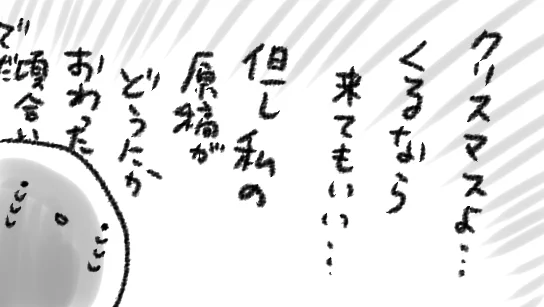 クリスマスよ…
くるなら
来てもいい…
但し私の
原稿が
どうにか
おわった
頃合い
でだ